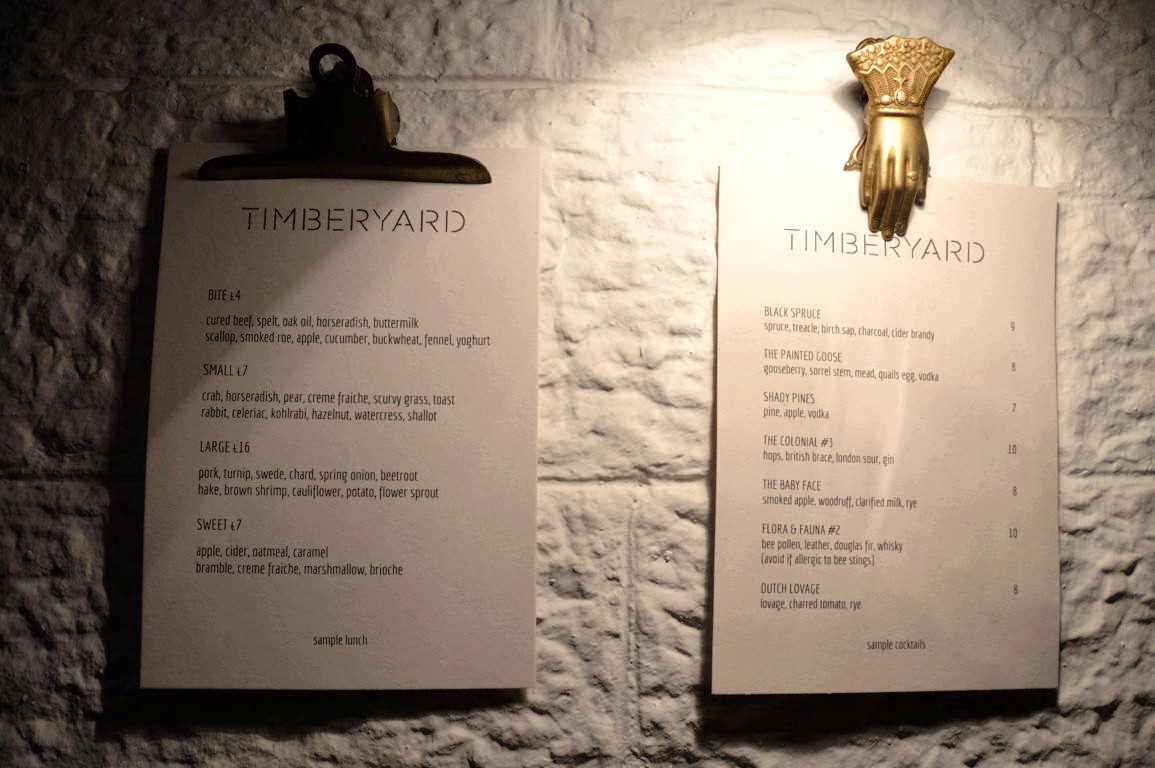 TIMBERYARD
BITE £4
cured beef, spelt, oak oil, horseradish, buttermilk
scallop, smoked roe, apple, cucumber, buckwheat, fennel, yoghurt
SMALL £7
crab, horseradish, pear, creme fraiche, scurvy grass, toast
rabbit, celeriac, kohlrabi, hazelnut, watercress, shallot
LARGE £16
pork, turnip, swede, chard, spring onion, beetroot
hake, brown shrimp, cauliflower, potato, flower sprout
SWEET £7
apple, cider, oatmeal, caramel
bramble, creme fraiche, marshmallow, brioche
sample lunch
TIMBERYARD
BLACK SPRUCE 9
spruce, treacle, birch sap, charcoal, cider brandy
THE PAINTED GOOSE 8
gooseberry, sorrel stem, mead, quails egg, vodka
SHADY PINES 7
pine, apple, vodka
THE COLONIAL #3 10
hops, british brace, london sour, gin
THE BABY FACE 8
smoked apple, woodruff, clarified milk, rye
FLORA & FAUNA #2 10
bee pollen, leather, douglas fir, whisky
(avoid if allergic to bee stings)
DUTCH LOVAGE 8
lovage, charred tomato, rye
sample cocktails